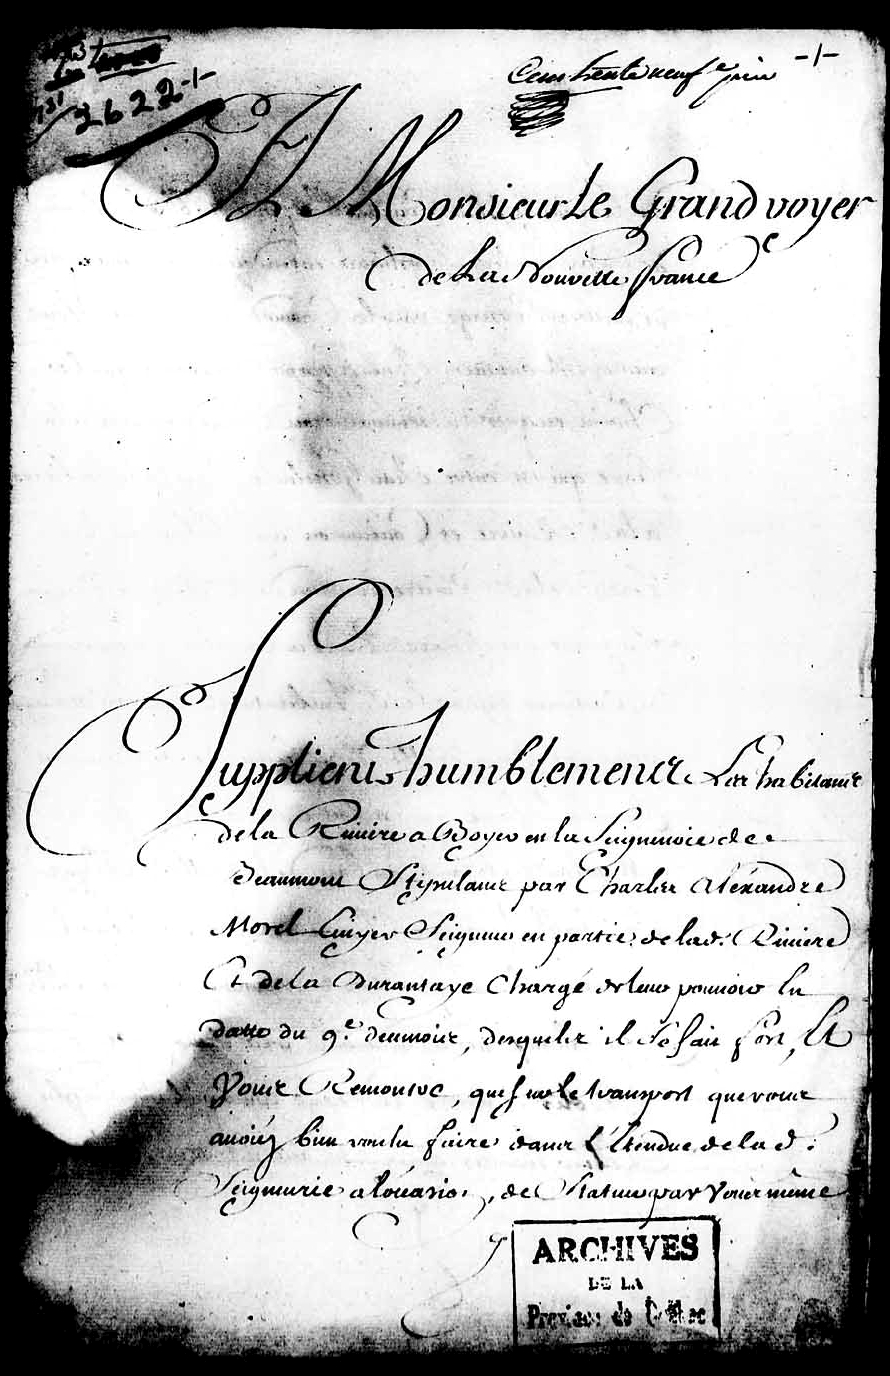 Cent trente neuf.e piece -1-
2622 -1-
A Monsieur Le Grand voyer
de La Nouvelle france
Supplient humblement Les habitans
de la Riviere a Boyer en la Seigneurie de
Beaumont Stipulant par Charles Alexandre
Morel Ecuyer Seigneur en partie de lad. Riviere
Et de la Durantaye Chargé de leur pouvoir en
datte du 9.e du mois, desquels il se fait fort, Et
Vous Remontre, que sur le transport que vous
aviéz bien voulu faire dans l'Etendue de la d.
Seigneurie a l'occasion, de Statuer par vous même
ARCHIVES
DE LA
Province de Québec